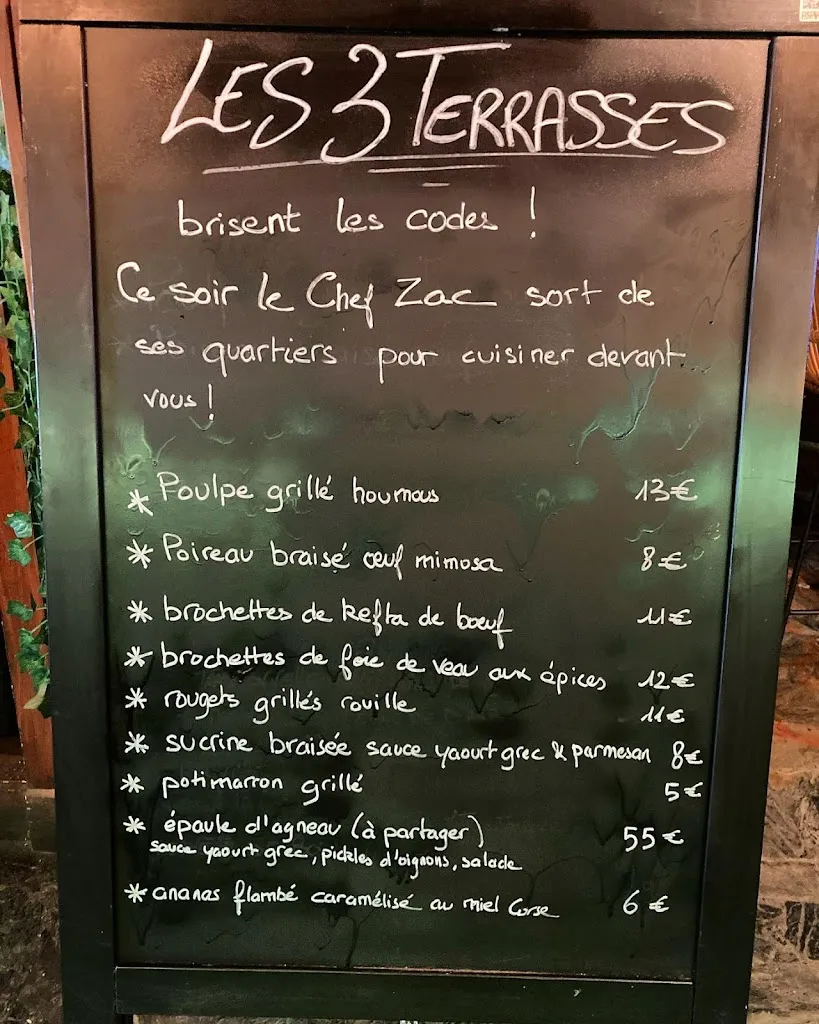 LES 3 TERRASSES
brisent les codes !
Ce soir le Chef Zac sort de
ses quartiers pour cuisiner devant
vous !
* Poulpe grillé houmous 13€
* Poireau braisé œuf mimosa 8€
* brochettes de kefta de bœuf 11€
* brochettes de foie de veau aux épices 12€
* rougets grillés rouille 11€
* sucrine braisée sauce yaourt grec & parmesan 8€
* potimarron grillé 5€
* épaule d'agneau (à partager) 55€
sauce yaourt grec, pickles d'oignons, salade
* ananas flambé caramélisé au miel Corse 6€